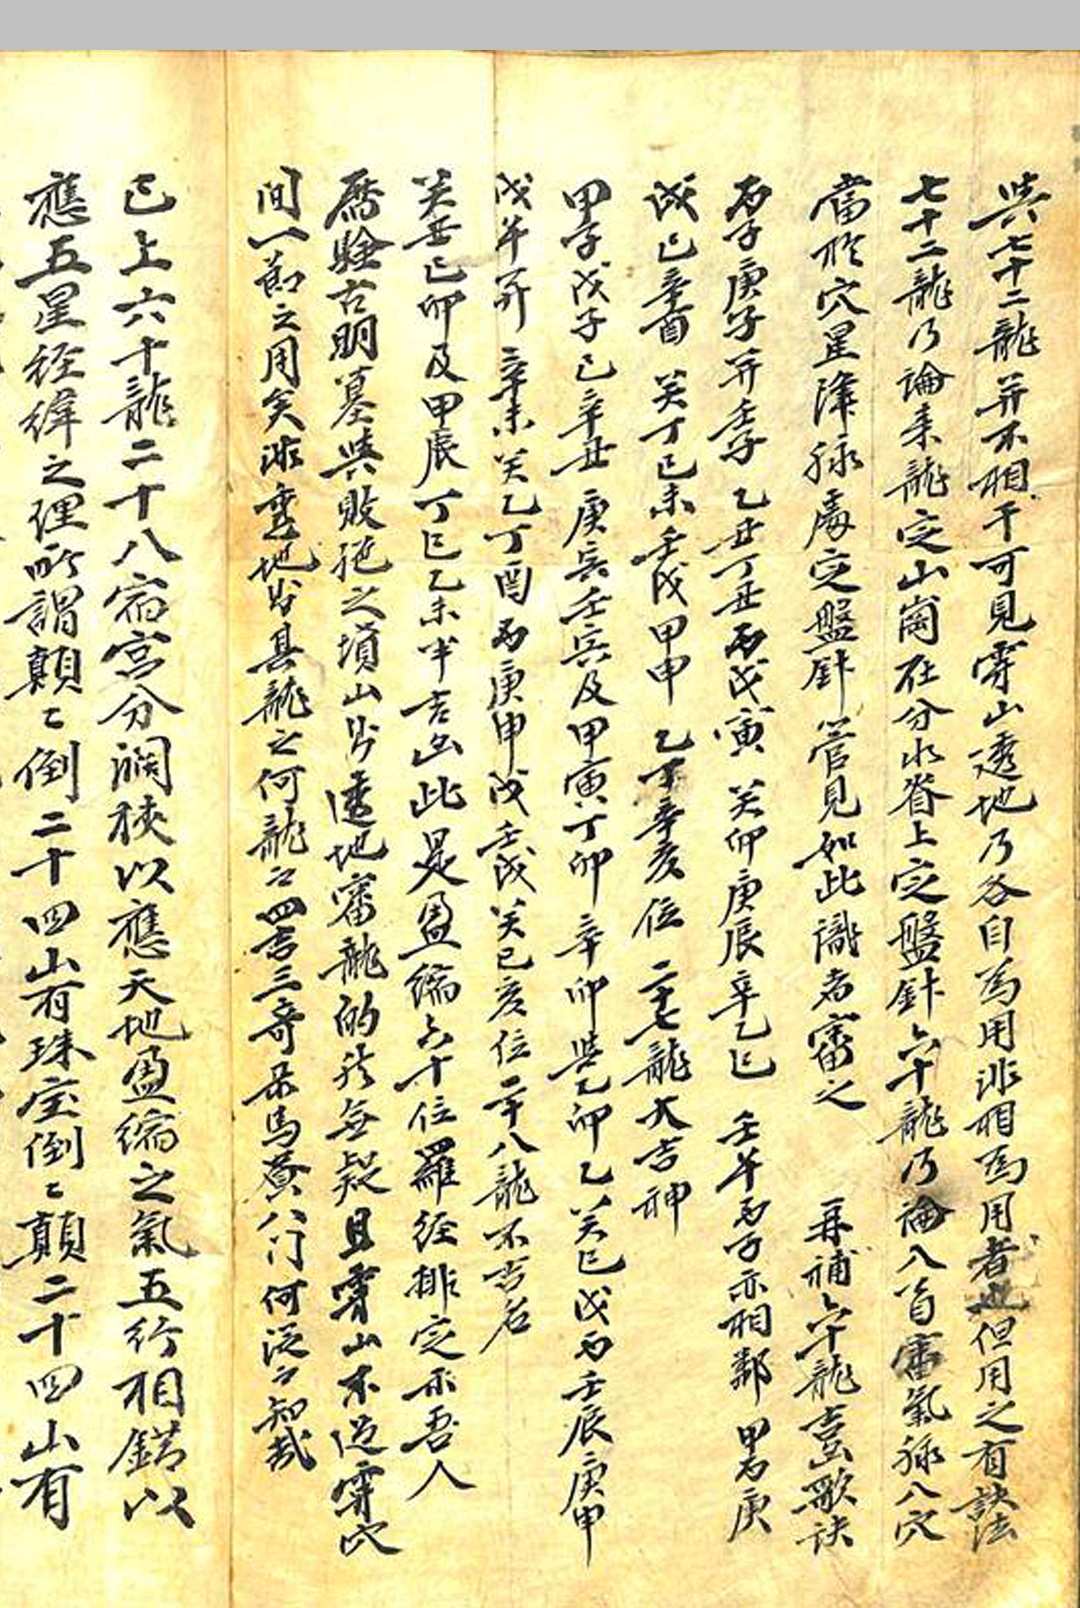 與七十二龍并不相干可見穿山透地乃各自為用非相為用者也但用之有訣法
七十二龍乃論来龍定山崗在分水脊上定盤針六十龍乃論入首審氣脉入穴
當於穴星降脉處定盤針管見如此識者審之 再補六十龍吉凶歌訣
丙子庚子并壬子乙丑丁丑丙戊寅 癸卯庚辰辛乙巳 壬午丙子亦相鄰 甲丙庚
戊巳辛酉 癸丁巳未壬戊甲申 乙丁辛亥位 二十七龍大吉神
甲子戊子巳辛丑 庚寅壬寅及甲寅丁卯 辛卯與乙卯乙癸巳戊丙壬辰庚甲
戊午并 辛未癸乙丁酉丙庚申戊壬戌癸巳亥位二十八龍不吉名
癸丑巳卯及甲辰丁巳乙未半吉凶此是盈縮六十位羅經排定示吾人
歷驗古明墓與敗絶之墳山皆透地審龍的於無疑且穿山不過穿穴
間一節之用矣非重地皆其龍之何龍之四吉三奇禄馬貴人八門何從而知哉
已上六十龍二十八宿宫分濶狹以應天地盈縮之氣五行相錯以
應五星經緯之理所謂顛々倒二十四山有珠宝倒々顛二十四山有